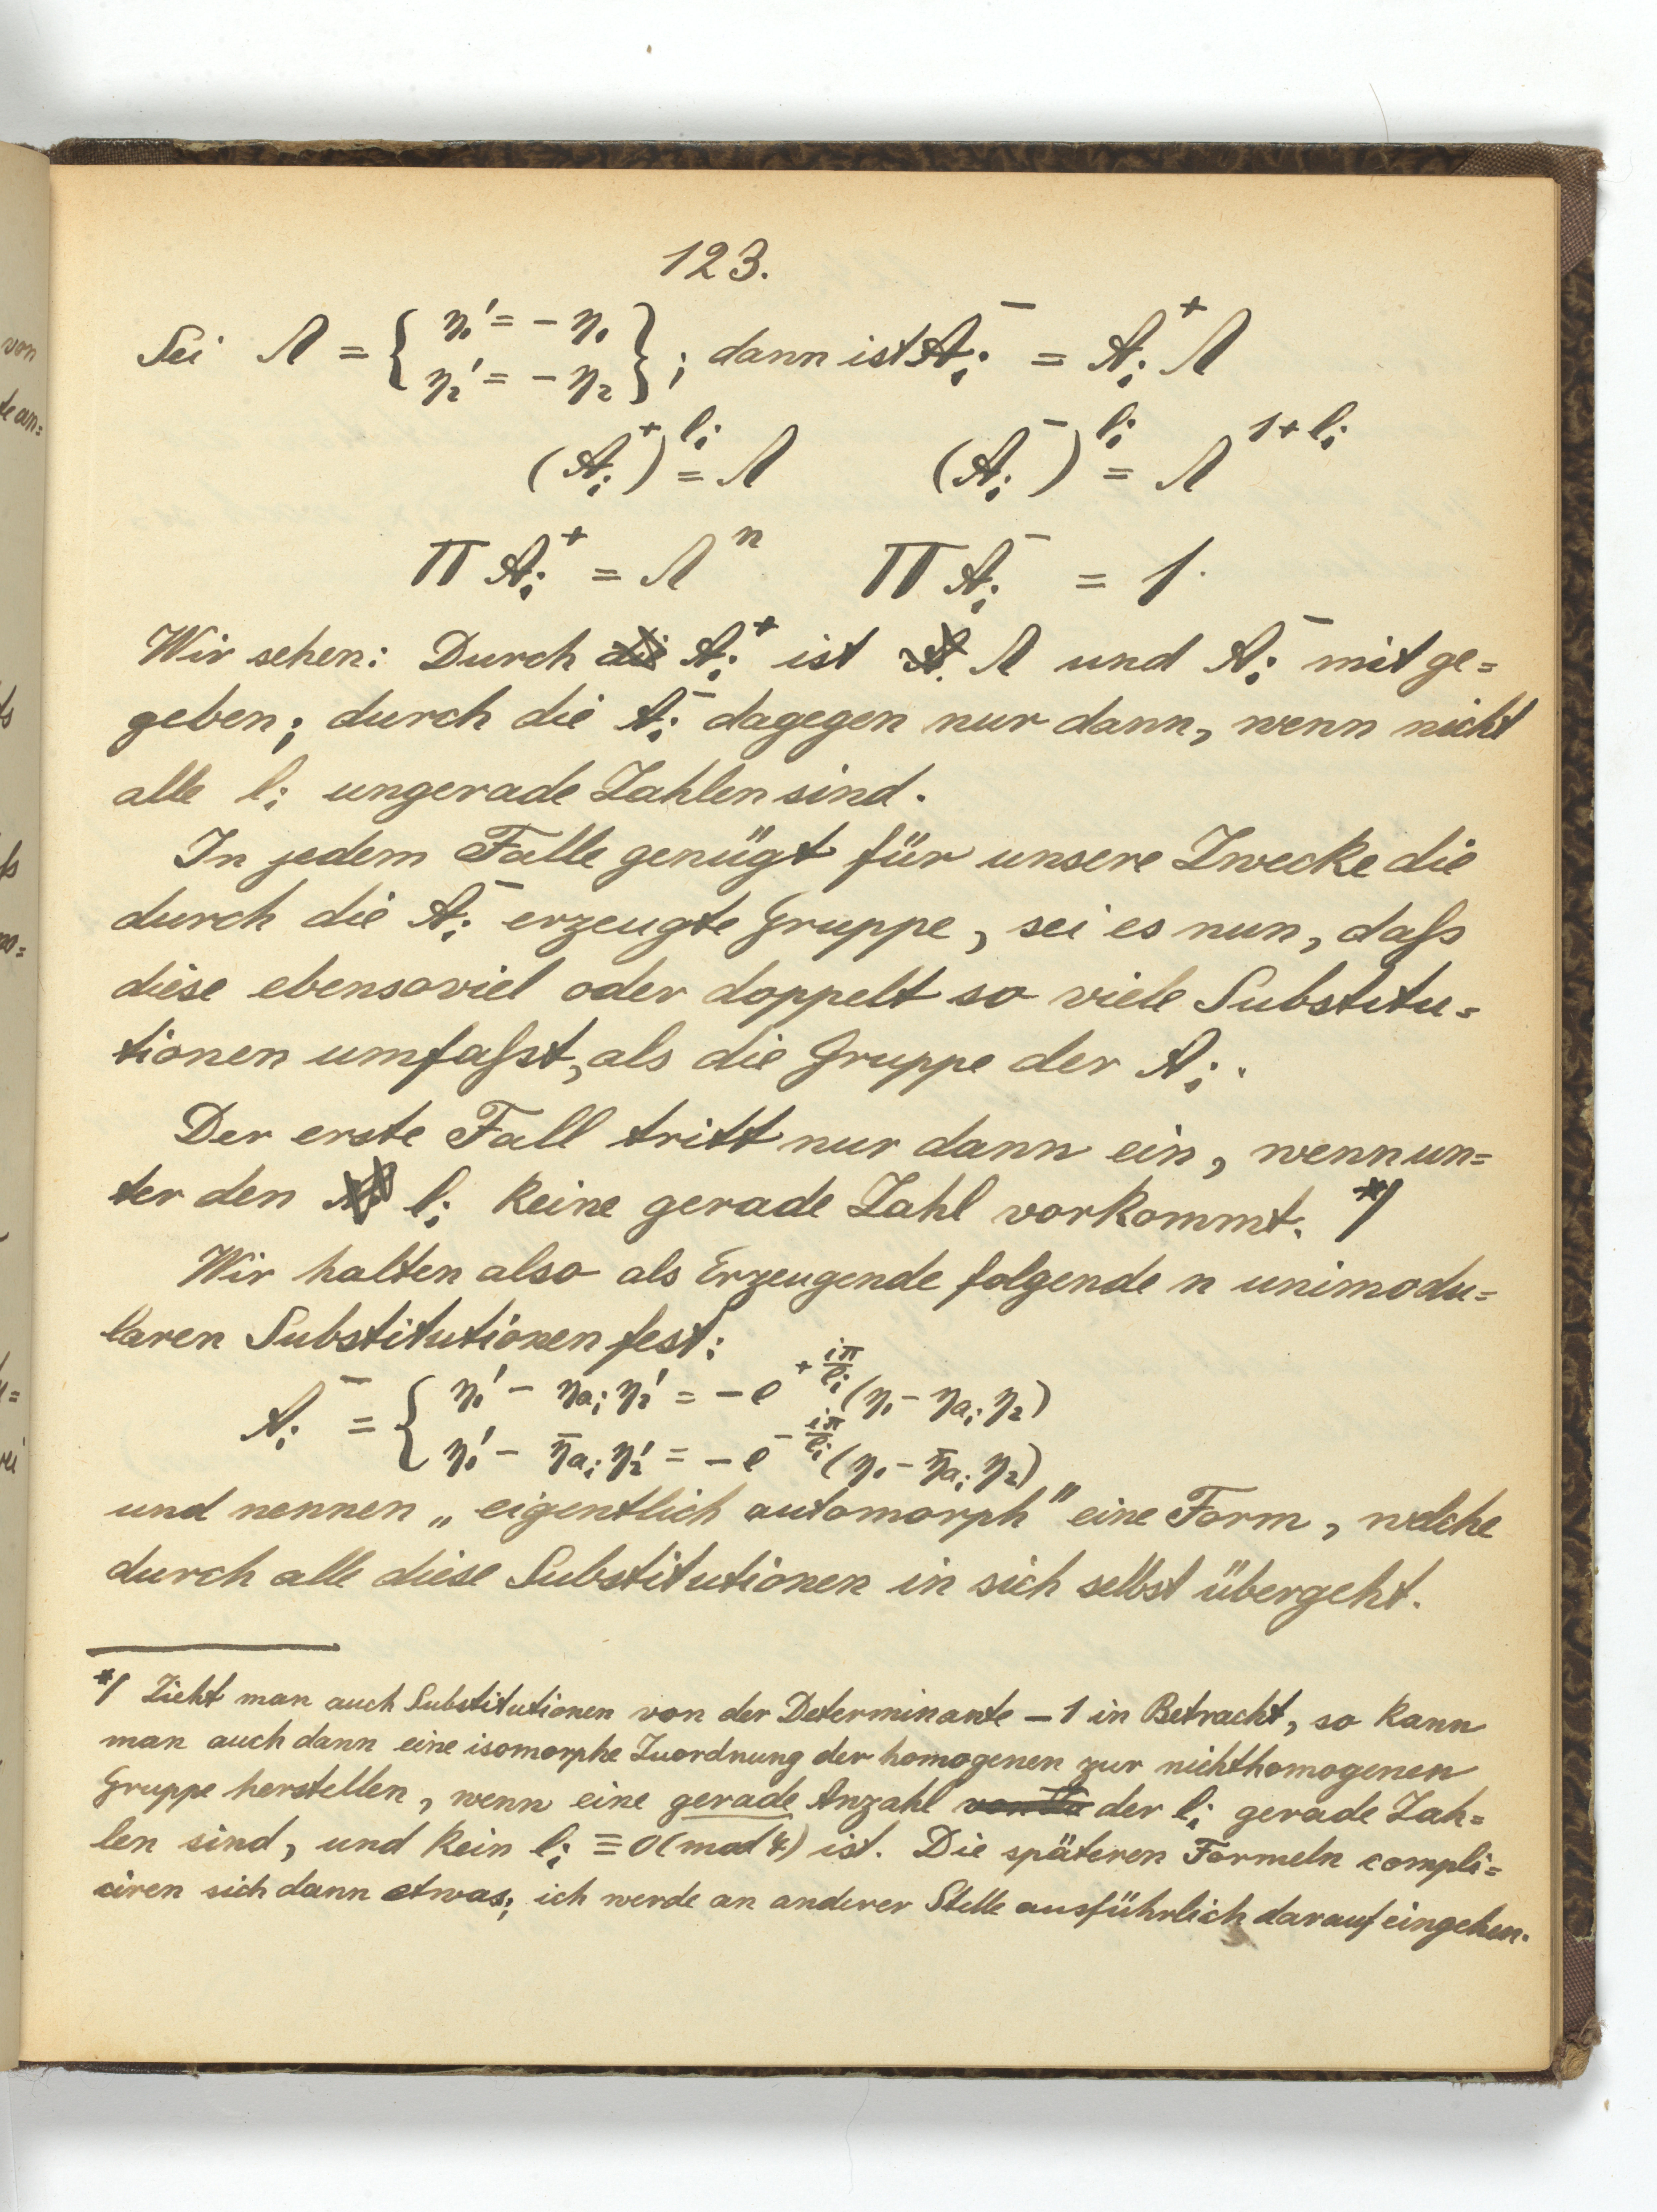 123.
Sei Λ = { η₁' = − η₁ ; η₂' = − η₂ } ; dann ist A_i^- = A_i^+ Λ
(A_i^+)^{l_i} = Λ (A_i^-)^{l_i} = Λ^{1+l_i}
Π A_i^+ = Λ^n Π A_i^- = 1.
Wir sehen: Durch die A_i^+ ist Λ und A_i^- mitge=
geben; durch die A_i^- dagegen nur dann, wenn nicht
alle l_i ungerade Zahlen sind.
In jedem Falle genügt für unsere Zwecke die
durch die A_i^- erzeugte Gruppe, sei es nun, daſs
diese ebensoviel oder doppelt so viele Substitu=
tionen umfaſst, als die Gruppe der A_i.
Der erste Fall tritt nur dann ein, wenn un=
ter den l_i keine gerade Zahl vorkommt. *)
Wir halten also als Erzeugende folgende n unimodu=
laren Substitutionen fest:
A_i^- = { η₁' − η_{a_i} η₂' = − e^{+ iπ/l_i} (η₁ − η_{a_i} η₂)
η₁' − η̄_{a_i} η₂' = − e^{− iπ/l_i} (η₁ − η̄_{a_i} η₂)
und nennen „eigentlich automorph" eine Form, welche
durch alle diese Substitutionen in sich selbst übergeht.
*) Zieht man auch Substitutionen von der Determinante −1 in Betracht, so kann
man auch dann eine isomorphe Zuordnung der homogenen zur nichthomogenen
Gruppe herstellen, wenn eine gerade Anzahl der l_i gerade Zah=
len sind, und kein l_i ≡ 0 (mod 4) ist. Die späteren Formeln compli=
ciren sich dann etwas; ich werde an anderer Stelle ausführlich darauf eingehen.